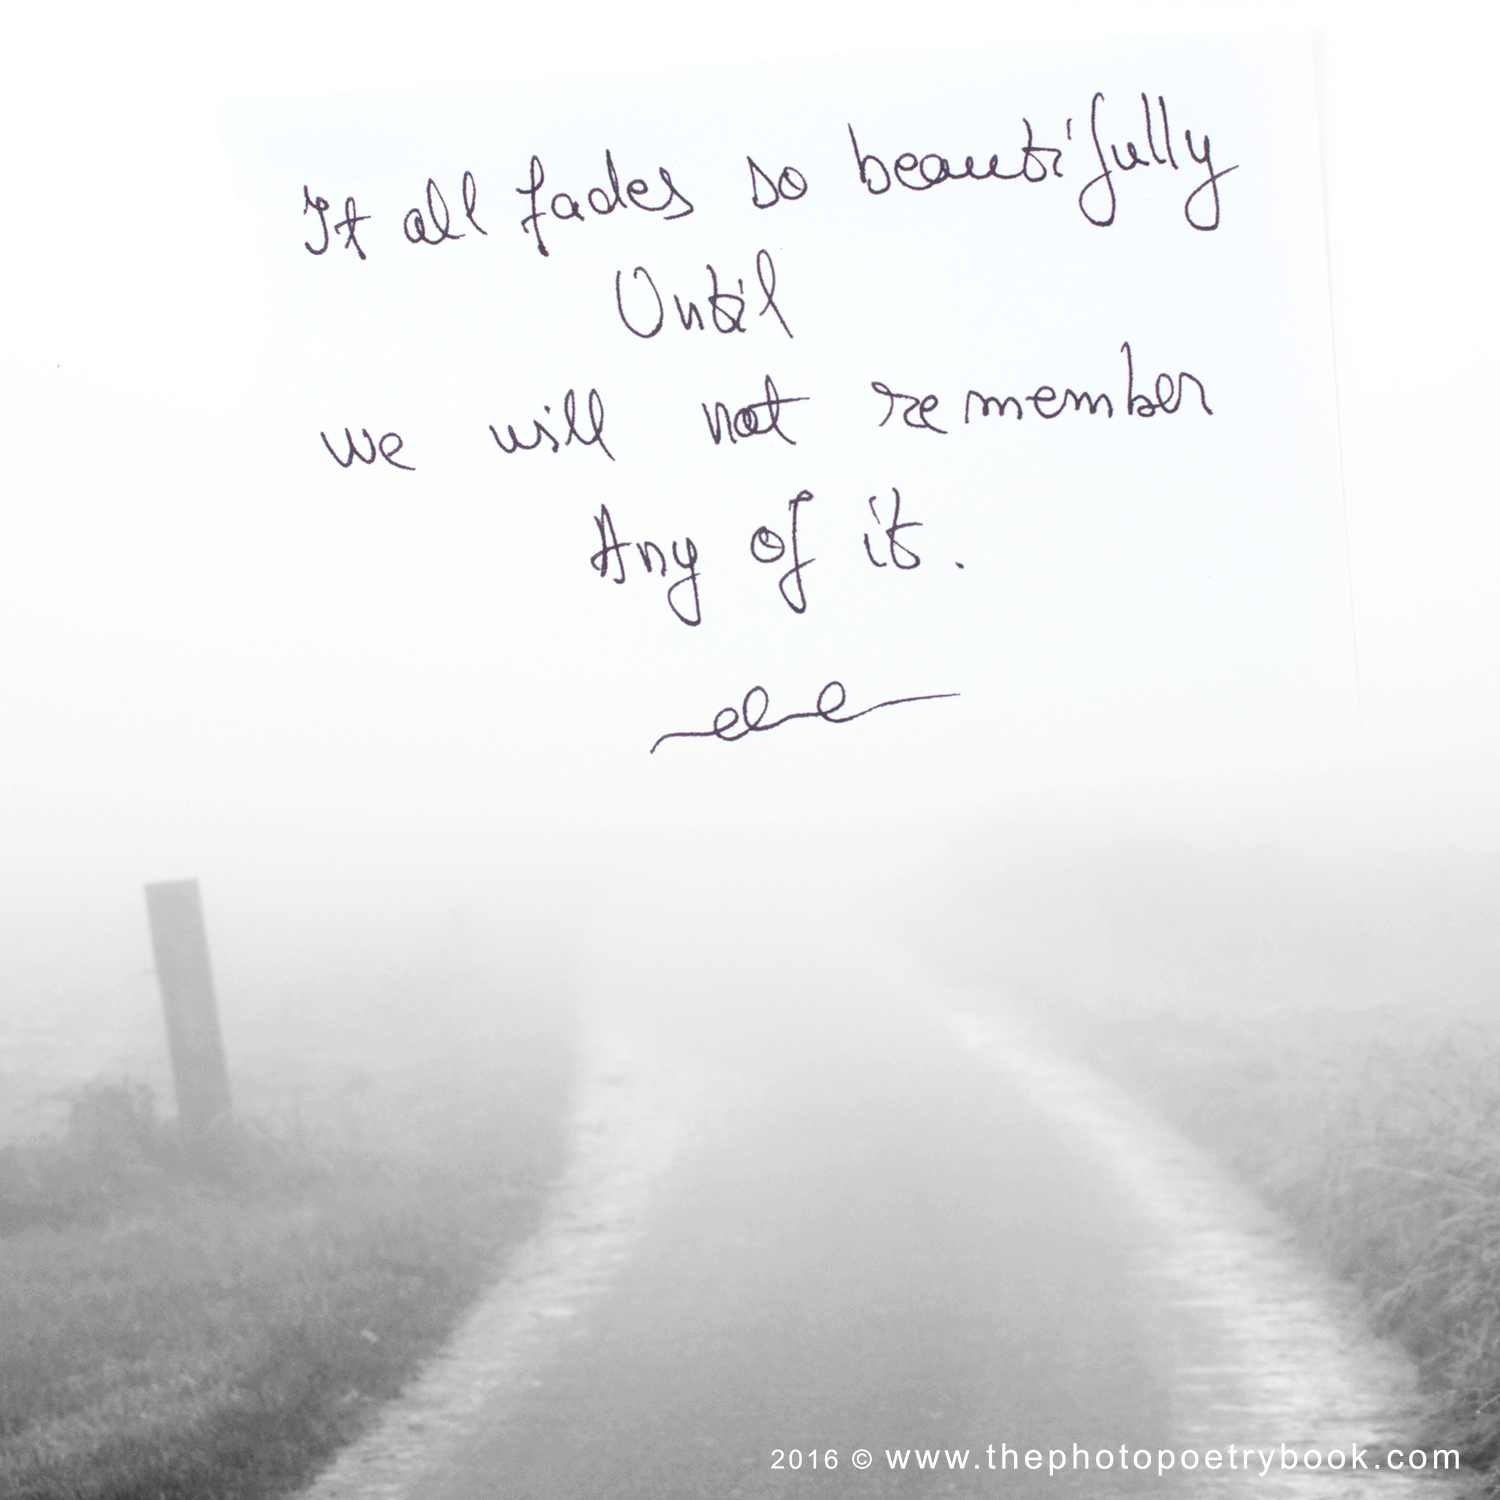 It all fades so beautifully
Until
we will not remember
Any of it.
2016 © www.thephotopoetrybook.com